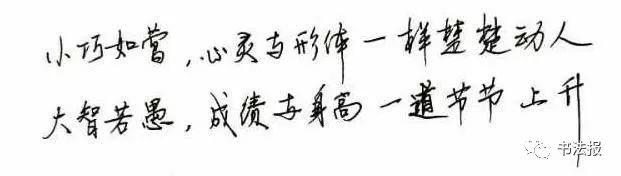 小巧如蕾，心灵与形体一样楚楚动人
大智若愚，成绩与身高一道节节上升
书法报